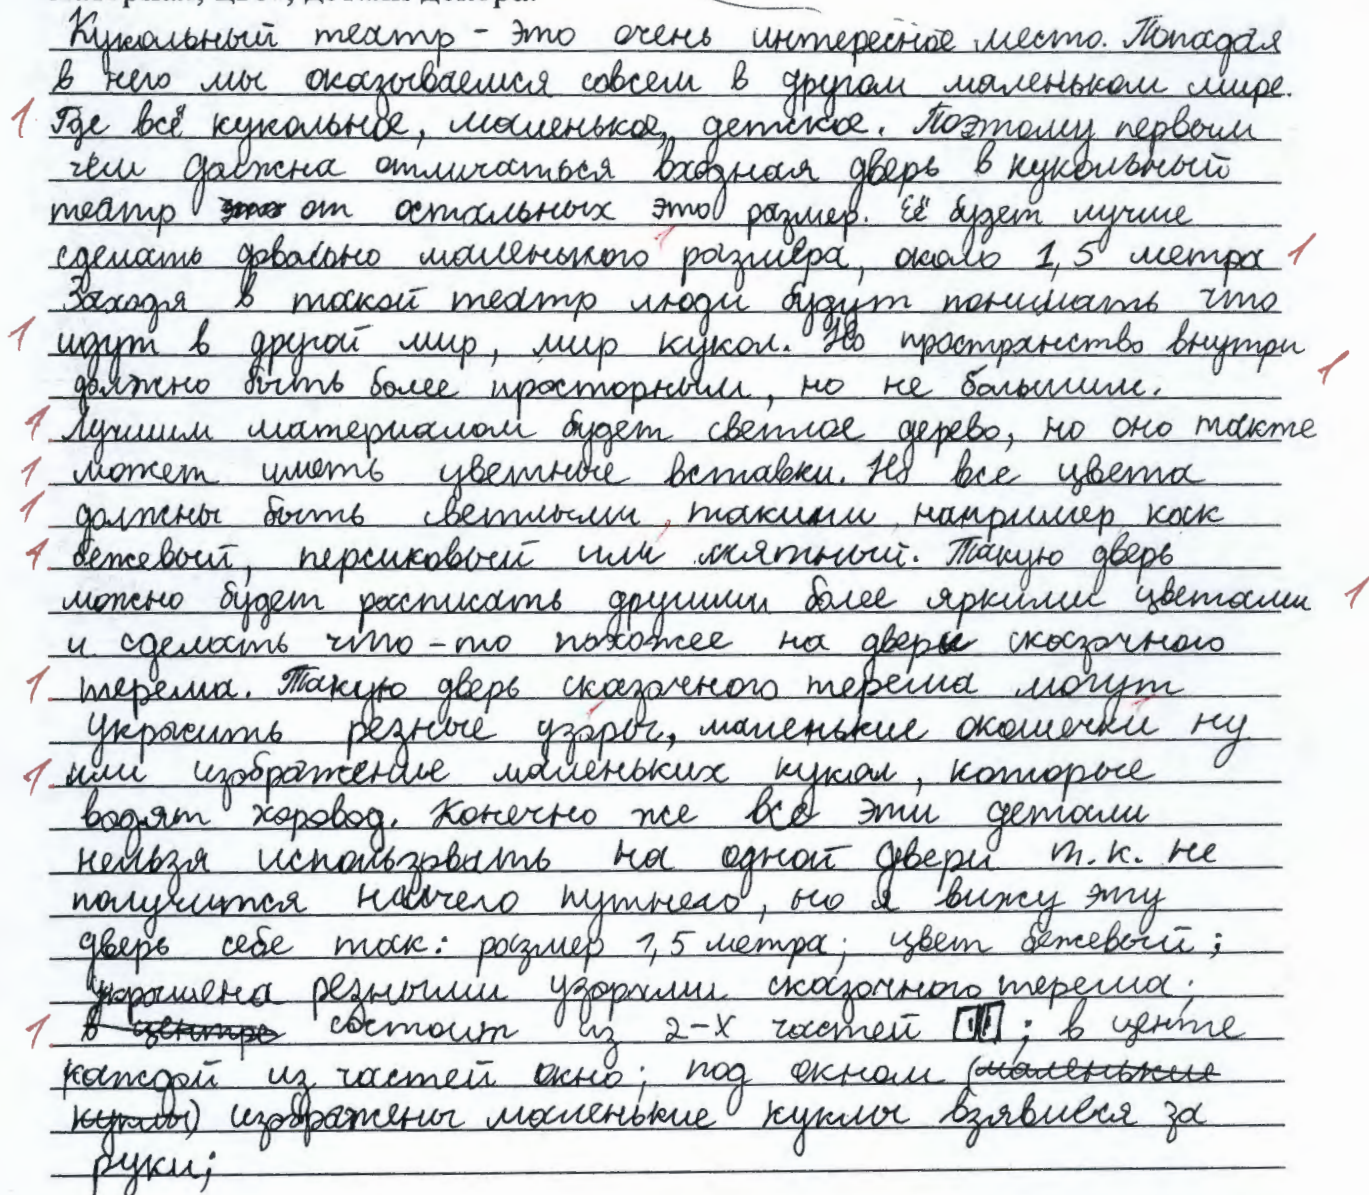 Кукольный театр - это очень интересное место. Попадая
в него мы оказываемся совсем в другом маленьком мире.
1 Где всё кукольное, маленькое, детское. Поэтому первым
чем должна отличаться входная дверь в кукольный
театр это от остальных это размер. Её будет лучше
сделать довольно маленького размера, около 1,5 метра 1
Заходя в такой театр люди будут понимать что
1 идут в другой мир, мир кукол. Но пространство внутри
должно быть более просторным, но не большим. 1
1 Лучшим материалом будет светлое дерево, но оно также
1 может иметь цветные вставки. Но все цвета
1 должны быть светлыми, такими например как
1 бежевый, персиковый или мятный. Такую дверь
можно будет расписать другими более яркими цветами 1
и сделать что-то похожее на двери сказочного
1 терема. Такую дверь сказочного терема могут
украсить резные узоры, маленькие окошечки ну
1 или изображение маленьких кукол, которые
водят хоровод. Конечно же все эти детали
нельзя использовать на одной двери т.к. не
получится ничего путнего, но я вижу эту
дверь себе так: размер 1,5 метра; цвет бежевый;
украшена резными узорами сказочного терема;
1 в центре состоит из 2-х частей ; в центе
каждой из частей окно; под окном (маленькие
куклы) изображены маленькие куклы взявшися за
руки;